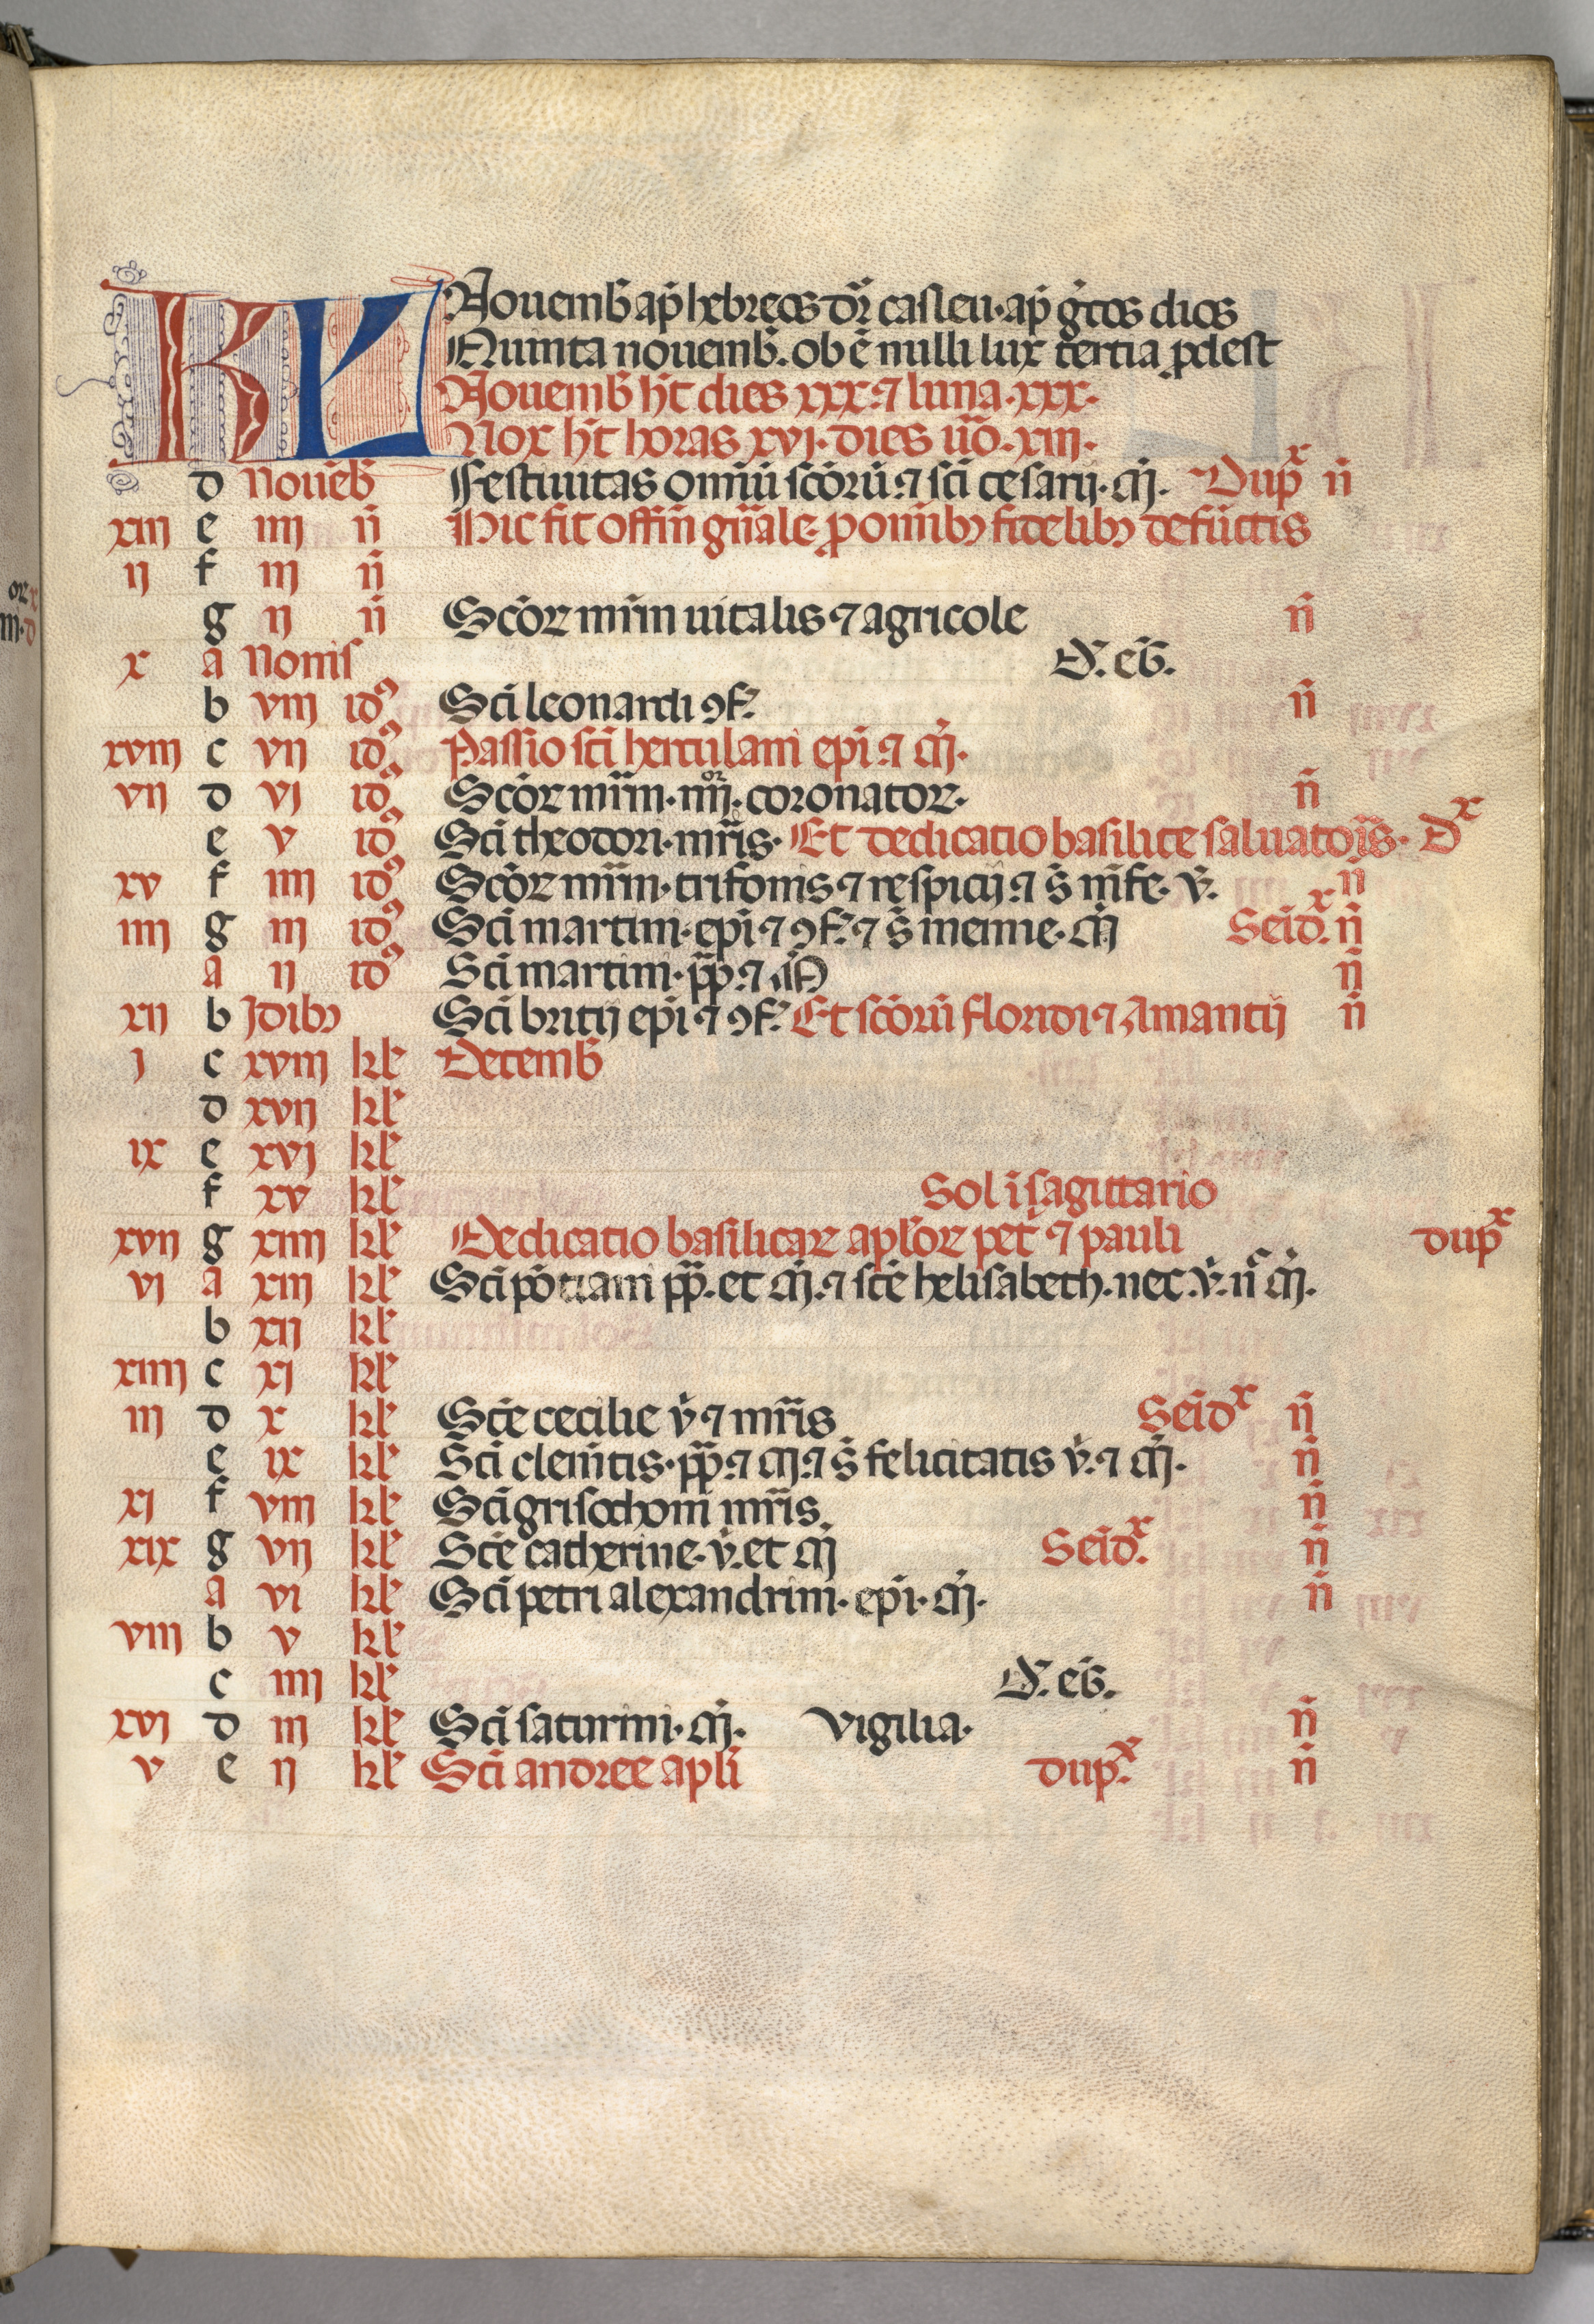 KL Nouemb̄ ap̄ hebreos dr̄ casleu · ap̄ g̊cos dios
Quinta nouemb̄. ob ē nulli lux tertia ꝓdest
Nouemb̄ h̄t dies xxx · ⁊ luna · xxx ·
Nox h̄t horas xvj · dies ūo · xiiij ·
d Nouēb̄ Festiuitas om̄iū sc̄oꝛū ⁊ sc̄i cesarij · m̄. Dup̄x n̄
xiii e iiij n̄ Hic fit offm̄ gn̄ale ꝓ om̄ibꝫ fidelibꝫ defūctis
ij f iij n̄
g ij n̄ Sc̄oꝛ mr̄m uitalis ⁊ agricole n̄
x a Nonis D̄. eḡ.
b viij idꝯ Sc̄i leonardi ꝯf. n̄
xviij c vij idꝯ Passio sc̄i herculani ep̄i ⁊ m̄.
vij d vj idꝯ Sc̄oꝛ mr̄m · iiijoꝛ. coronatoꝛ · n̄
e v idꝯ Sc̄i theodori · mr̄is · Et dedicatio basilice saluatoris · Dx
xv f iiij idꝯ Sc̄oꝛ mr̄m · trifonis ⁊ respicij ⁊ s̄ nīfe · v̄. n̄
iiij g iij idꝯ Sc̄i martini · ep̄i ⁊ ꝯf. ⁊ s̄ menne · m̄ Semd̄x. n̄
a ij idꝯ Sc̄i martini · pp̄ · ⁊ m̄ n̄
xij b Jdibꝫ Sc̄i britij ep̄i ⁊ ꝯf. Et sc̄oꝛū floridi ⁊ Amantij n̄
j c xviij kl̄ Decemb̄
d xvij kl̄
ix e xvj kl̄
f xv kl̄ Sol ī sagittario
xvij g xiiij kl̄ Dedicatio basilicaꝛ apl̄oꝛ pet̄ ⁊ pauli dup̄x
vj a xiij kl̄ Sc̄i pōtiani pp̄. et m̄. ⁊ sc̄e helisabeth. nec. v̄. n̄c m̄.
b xij kl̄
xiiij c xj kl̄
iij d x kl̄ Sc̄e cecilie v̄ ⁊ mr̄is Semd̄x n̄
e ix kl̄ Sc̄i clem̄tis · pp̄ · ⁊ m̄ ⁊ s̄ felicitatis v̄. ⁊ m̄. n̄
xj f viij kl̄ Sc̄i grisochoni mr̄is n̄
xix g vij kl̄ Sc̄e catherine · v̄. et m̄ Semd̄x. n̄
a vi kl̄ Sc̄i petri alexandrini · ep̄i · m̄. n̄
viij b v kl̄
c iiij kl̄ D̄. eḡ.
xvj d iij kl̄ Sc̄i saturnini · m̄. Vigilia · n̄
v e ij kl̄ Sc̄i andree apl̄i dup̄x. n̄